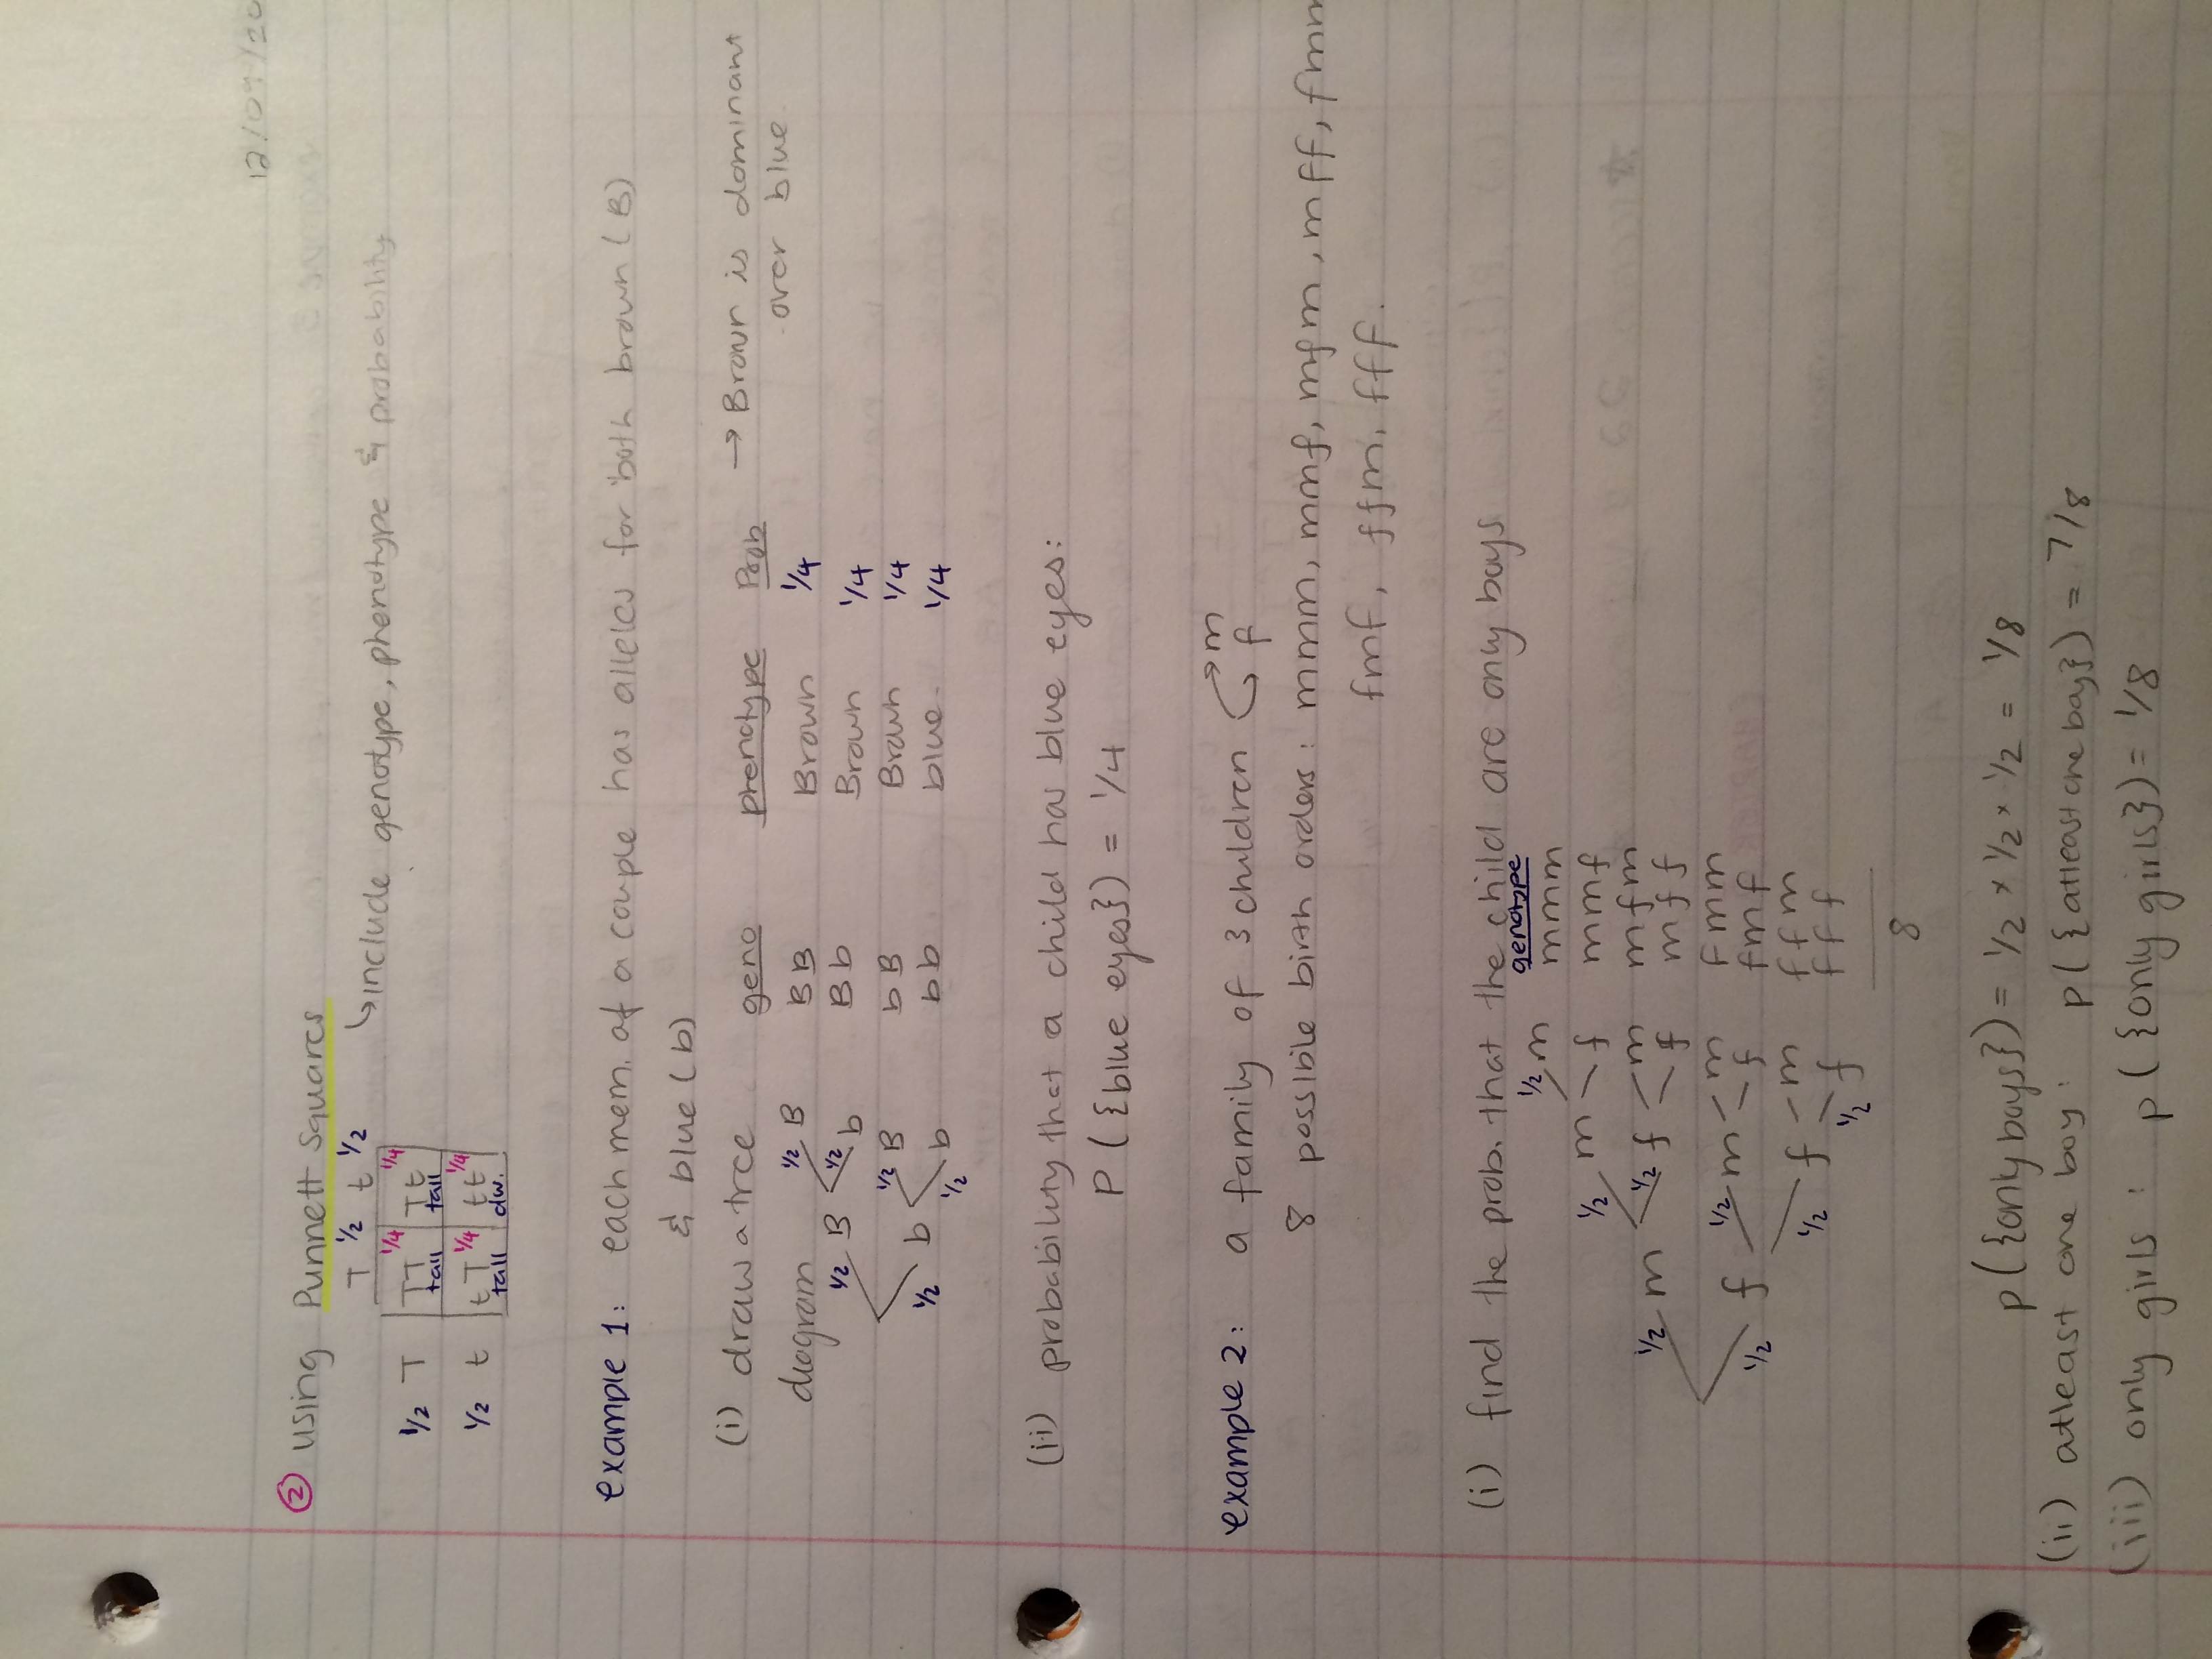 12/09/20
② using Punnett Squares
↳include genotype, phenotype & probability
T 1/2 t 1/2
1/2 T TT 1/4 tall Tt 1/4 tall
1/2 t tT 1/4 tall tt 1/4 dw.
example 1: each mem. of a couple has alleles for both brown (B)
& blue (b)
(i) draw a tree geno phenotype Prob → Brown is dominant
diagram over blue
1/2 B 1/2 B BB Brown 1/4
1/2 b Bb Brown 1/4
1/2 b 1/2 B bB Brown 1/4
1/2 b bb blue 1/4
(ii) probability that a child has blue eyes:
P({blue eyes}) = 1/4
example 2: a family of 3 children → m
f
8 possible birth orders: mmm, mmf, mfm, mff, fmm
fmf, ffm, fff.
(i) find the prob. that the child are only boys
genotype
1/2 m 1/2 m 1/2 m mmm
f mmf
1/2 f m mfm
f mff
1/2 f 1/2 m m fmm
f fmf
1/2 f m ffm
1/2 f fff
8
P({only boys}) = 1/2 × 1/2 × 1/2 = 1/8
(ii) atleast one boy: P({atleast one boy}) = 7/8
(iii) only girls: P({only girls}) = 1/8